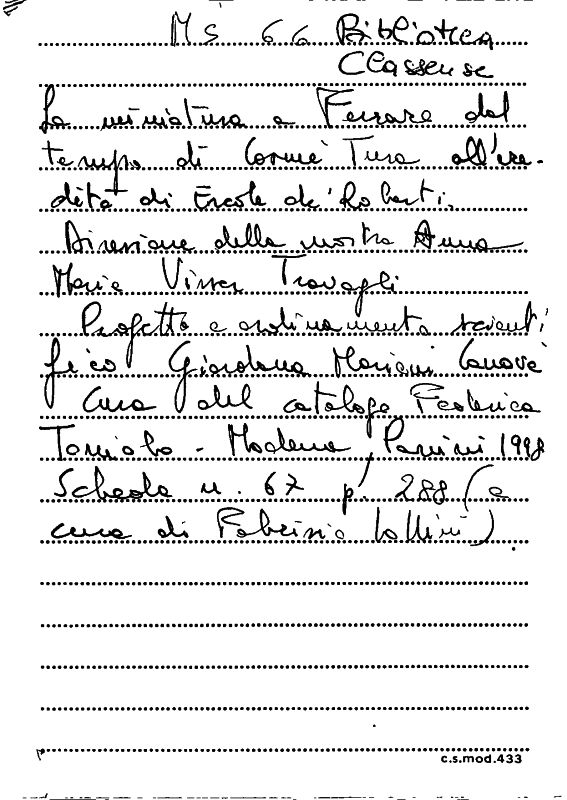 MS 66 Biblioteca
Classense
La miniatura a Ferrara dal
tempo di Cosmè Tura all'ere-
dità di Ercole de' Roberti.
Direzione della mostra Anna
Maria Visser Travagli
Progetto e ordinamento scienti
fico Giordana Mariani Canova
Cura del catalogo Federica
Toniolo - Modena, Panini 1998
Scheda n. 67 p. 288 (a
cura di Fabrizio Lollini).
c.s.mod.433